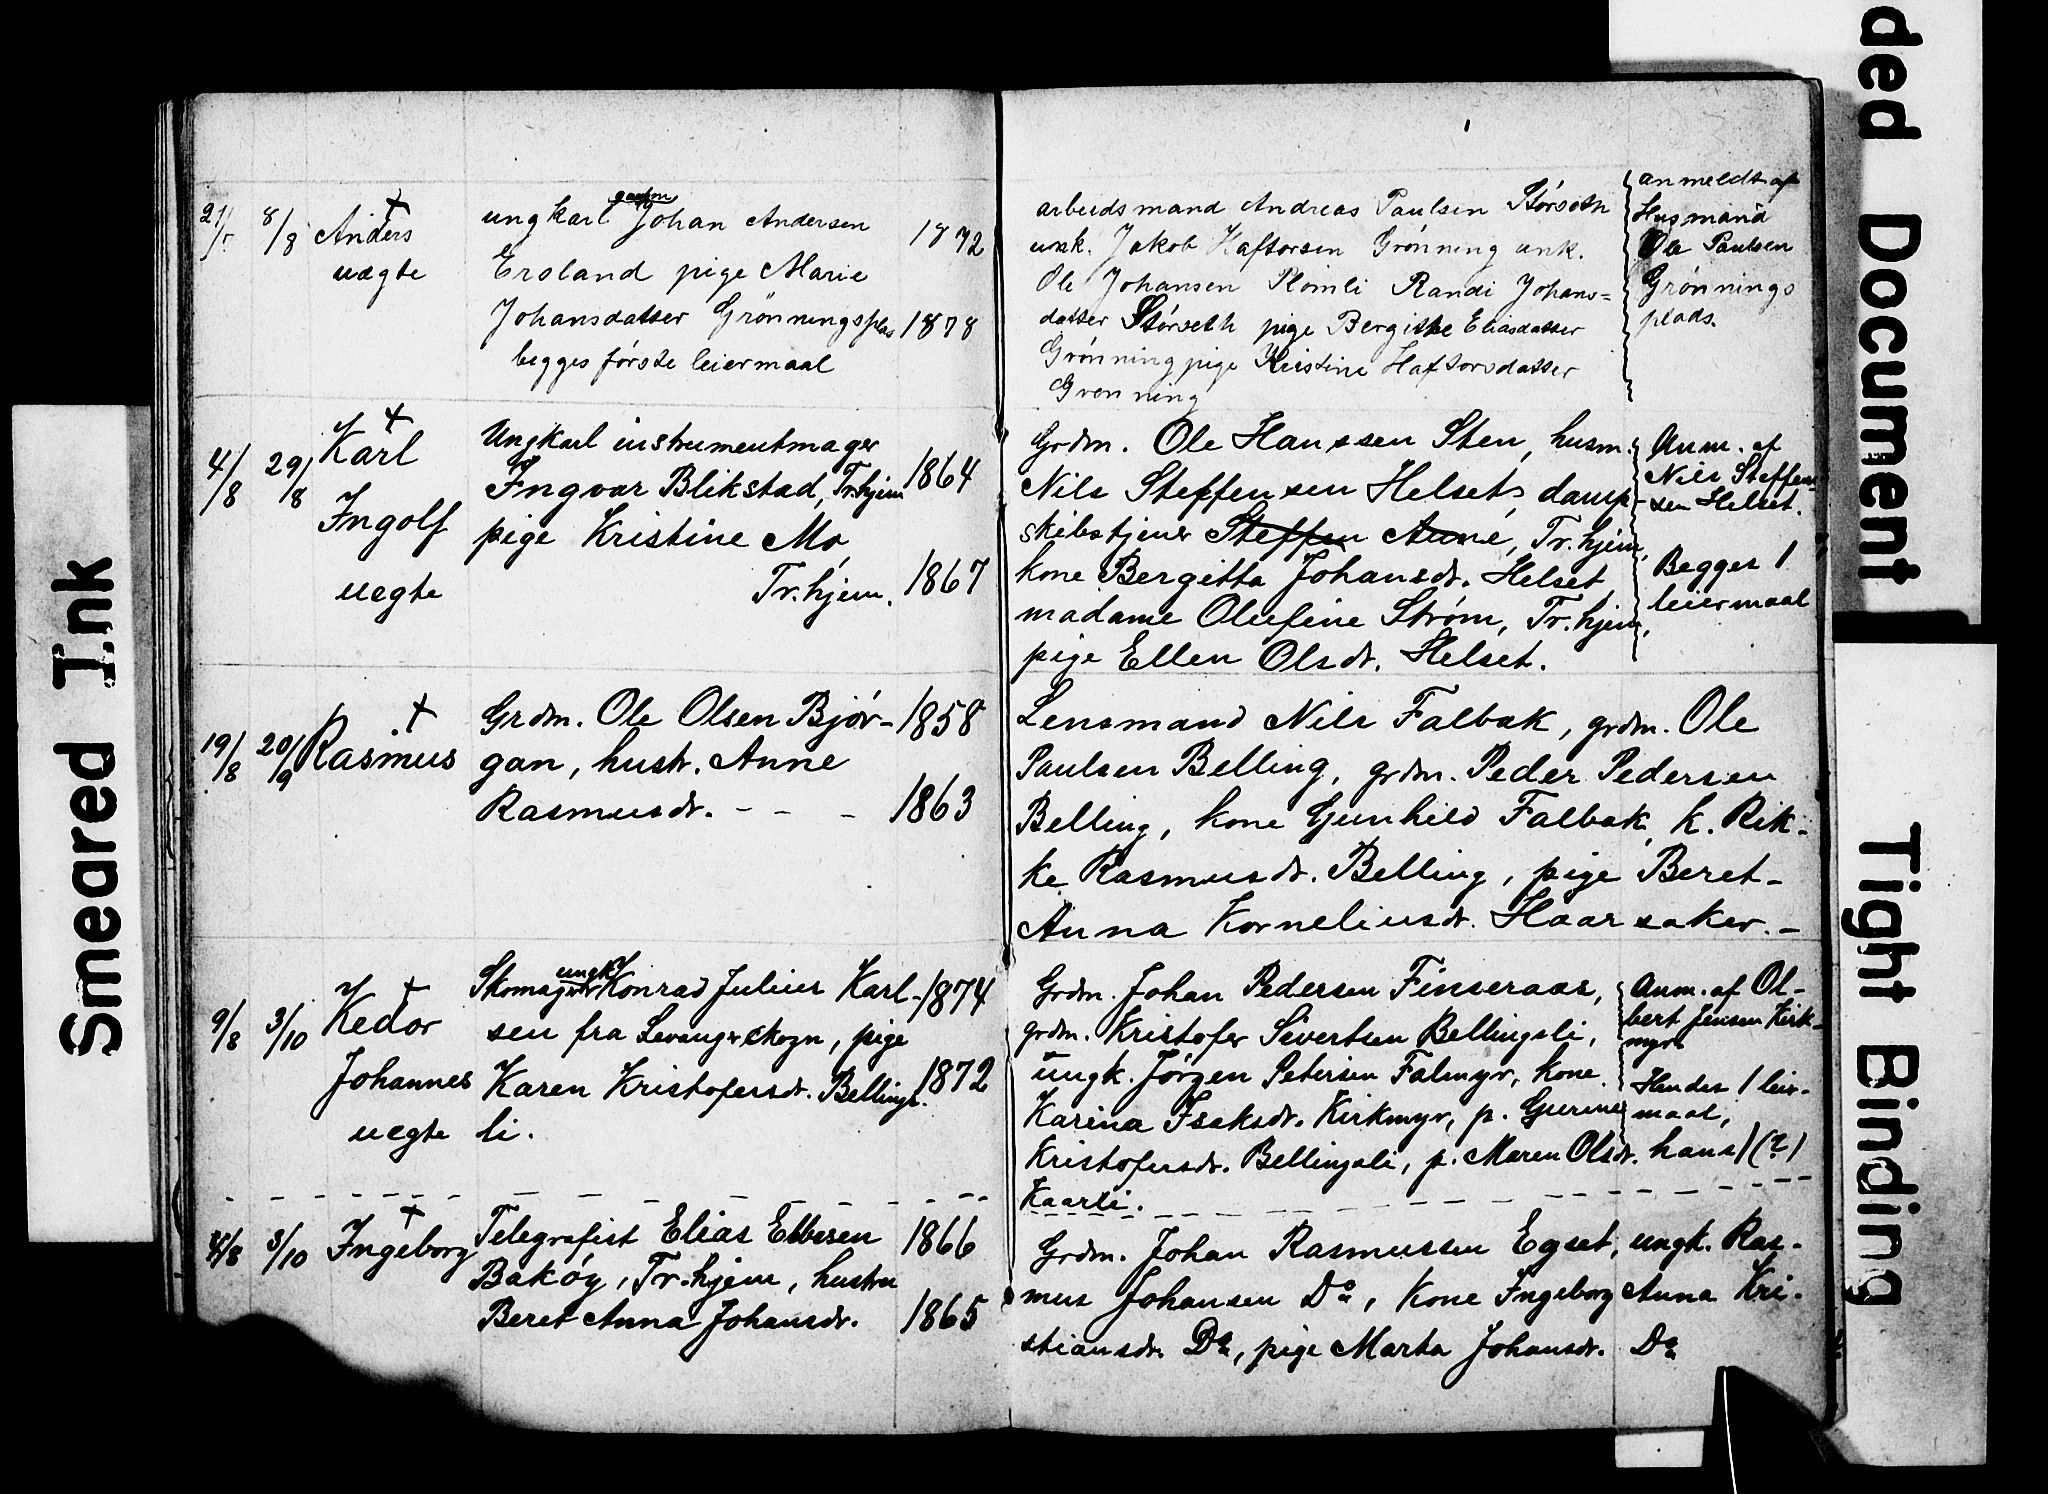 Smeared Ink
ded Document
Tight Binding
8/8 Anders
uægte
ungkarl Johan Andersen
1872
pige Marie
Johansdatter Grönningsplas 1878
begges förste leiermaal
arbeidsmand Andreas Paulsen Störseth
Jakob Haftorsen Grönning
Ole Johansen Plömli Randi Johans=
datter Störseth pige Bergitthe Eliasdatter
Grönning pige Kristine Haftorsdatter
Grönning
anmeldt af
Husmand
Ole Paulsen
Grönnings
plads.
4/8 29/8 Karl
Ingolf
uægte
Ungkarl instrumentmager
Ingvar Blikstad, Tr.hjem 1864
pige Kristine Mo,
Tr.hjem. 1867
Grdm. Ole Hanssen Sten, husm.
Nils Steffensen Helset, damp-
skibstjener Steffen Aune, Tr.hjem,
kone Bergitta Johansdr. Helset,
madame Olufine Strøm, Tr.hjem,
pige Ellen Olsdr. Helset.
Anm. af
Nils Steffen-
sen Helset.
Begges 1
leiermaal
19/8 20/9 Rasmus
Grdm. Ole Olsen Bjør- 1858
gan, hustr. Anne
Rasmusdr. - - - 1863
Lensmand Nils Falbak, grdm. Ole
Paulsen Belling, grdm. Peder Pedersen
Belling, kone Gunhild Falbak, k. Rik-
ke Rasmusdr. Belling, pige Beret-
Anna Korneliusdr. Haarsaker. -
9/8 3/10 Kedor
Johannes
uægte
ungk.
Skomager Konrad Julius Karl- 1874
sen fra Levangerskogn, pige
Karen Kristofersdr. Bellings- 1872
li.
Grdm. Johan Pedersen Finseraas,
grdm. Kristofer Sivertsen Bellingsli,
ungk. Jørgen Petersen Falmyr, kone
Karina Isaksdr. Kirkmyr, p. Gurine
Kristofersdr. Bellingsli, p. Maren Olsdr.
Kaarli.
Anm. af Ol-
bert Jensen Kirk-
myr
Hendes 1 leier-
maal,
hans 1 (?)
4/8 3/10 Ingeborg
Telegrafist Elias Ellevsen 1866
Bakøy, Tr.hjem, hustru
Beret Anna Johansdr. 1865
Grdm. Johan Rasmussen Egset, ungk. Ras-
mus Johansen Do, kone Ingeborg Anna Kri-
stiansdr. Do, pige Marta Johansdr. Do